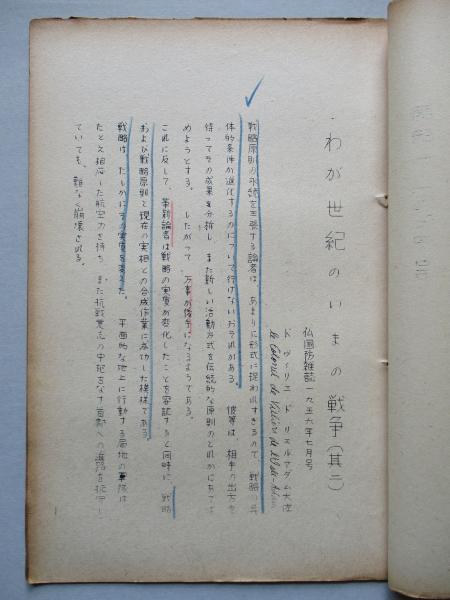 わが世紀のいまの戦争(其二)
仏国防雑誌一九五六年七月号
ド ヴィリエ ド リエルアダム大佐
le Colonel de Villiers de l'Isle-Adam
戦略原則の永続を主張する論者は、あまりに形式に捉われすぎるので、戦略の具
体的条件が進化するのについて行けないおそれがある。 彼等は、相手の出方を
待ってその成果を分析し、また新しい活動方式を伝統的な原則のどれかにあては
めようとする。 したがって、万事が後手になるようである。
これに反して、革新論者は戦略の実質が変化したことを容認すると同時に、戦略
および戦略原則と現在の実相との合成作業に成功した模様である。
戦略は、たしかにその実質を変えた。 平面的な地上に行動する局地の軍隊は
たとえ相応した航空力を持ち、また抗戦意志の中枢をなす首都への進路を扼守し
ていても、難なく崩壊される。